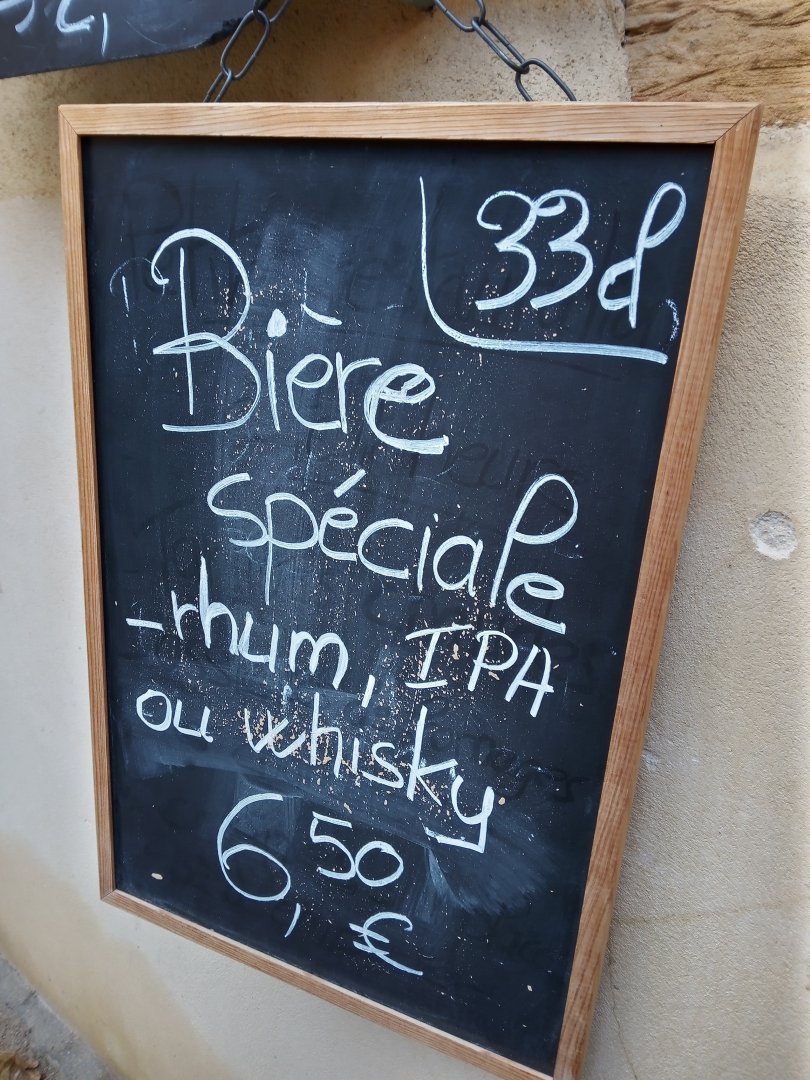 33cl
Bière
spéciale
- rhum, IPA
ou whisky
6,50 €